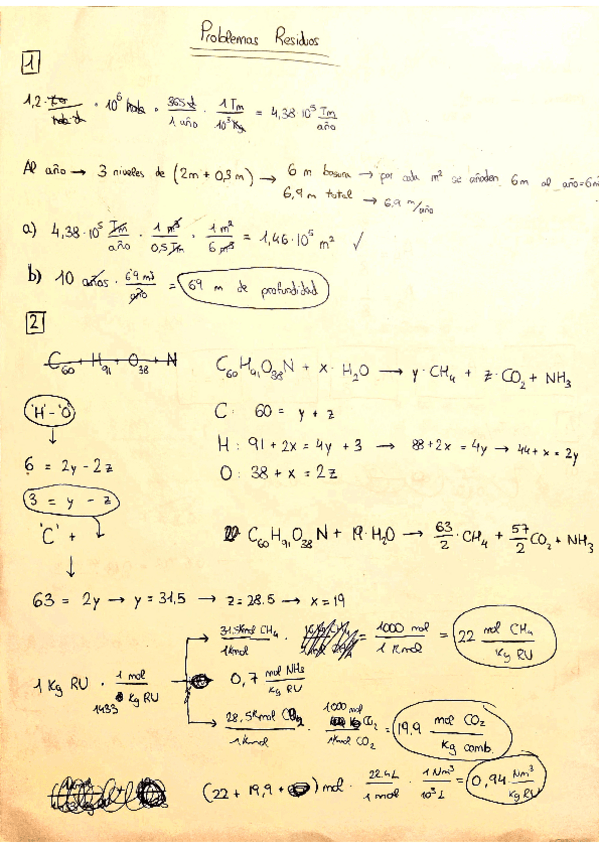 Problemas Residuos
1
1,2 · Kg/hab·d · 10⁶ hab · 365 d/1 año · 1 Tm/10³ Kg = 4,38·10⁵ Tm/año
Al año → 3 niveles de (2m + 0,3m) → 6 m basura → por cada m² se añaden 6m al año=6m
6,9 m total → 6,9 m/año
a) 4,38·10⁵ Tm/año · 1 m³/0,5 Tm · 1 m²/6 m³ = 1,46·10⁵ m² ✓
b) 10 años · 6,9 m³/año = 69 m de profundidad
2
C₆₀ + H₉₁ + O₃₈ + N
C₆₀H₉₁O₃₈N + x·H₂O → y·CH₄ + z·CO₂ + NH₃
'H'-'O'
C: 60 = y + z
H: 91 + 2x = 4y + 3 → 88 + 2x = 4y → 44 + x = 2y
6 = 2y - 2z
O: 38 + x = 2z
3 = y - z
'C' +
C₆₀H₉₁O₃₈N + 19·H₂O → 63/2·CH₄ + 57/2 CO₂ + NH₃
63 = 2y → y = 31,5 → z = 28.5 → x = 19
31,5Kmol CH₄/1Kmol · = 1000 mol/1 Kmol = 22 mol CH₄/Kg RU
1 Kg RU · 1 mol/1433 Kg RU
0,7 mol NH₃/Kg RU
28,5Kmol CO₂/1Kmol · 1000 mol CO₂/1Kmol CO₂ = 19,9 mol CO₂/Kg comb.
(22 + 19,9 + ) mol · 22.4L/1 mol · 1 Nm³/10³ L = 0,94 Nm³/Kg RU